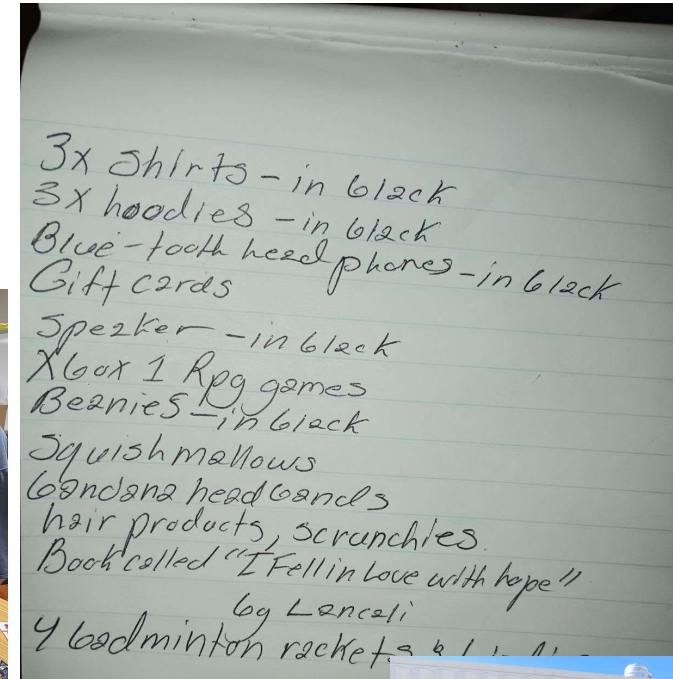 3x Shirts - in black
3X hoodies - in black
Blue-tooth head phones - in black
Gift cards
Speaker - in black
Xbox 1 Rpg games
Beanies - in black
Squishmallows
bandana headbands
hair products, scrunchies.
Book called "I Fell in Love with hope"
by Lancali
4 badminton rackets &